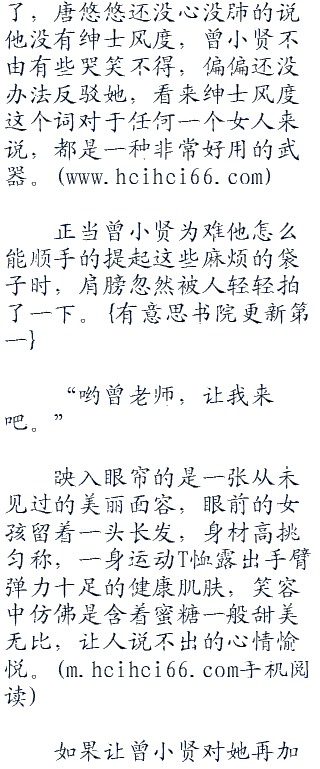 了，唐悠悠还没心没肺的说
他没有绅士风度，曾小贤不
由有些哭笑不得，偏偏还没
办法反驳她，看来绅士风度
这个词对于任何一个女人来
说，都是一种非常好用的武
器。(www.hcihci66.com)
正当曾小贤为难他怎么
能顺手的提起这些麻烦的袋
子时，肩膀忽然被人轻轻拍
了一下。{有意思书院更新第
一}
“哟曾老师，让我来
吧。”
映入眼帘的是一张从未
见过的美丽面容，眼前的女
孩留着一头长发，身材高挑
匀称，一身运动T恤露出手臂
弹力十足的健康肌肤，笑容
中仿佛是含着蜜糖一般甜美
无比，让人说不出的心情愉
悦。(m.hcihci66.com手机阅
读)
如果让曾小贤对她再加